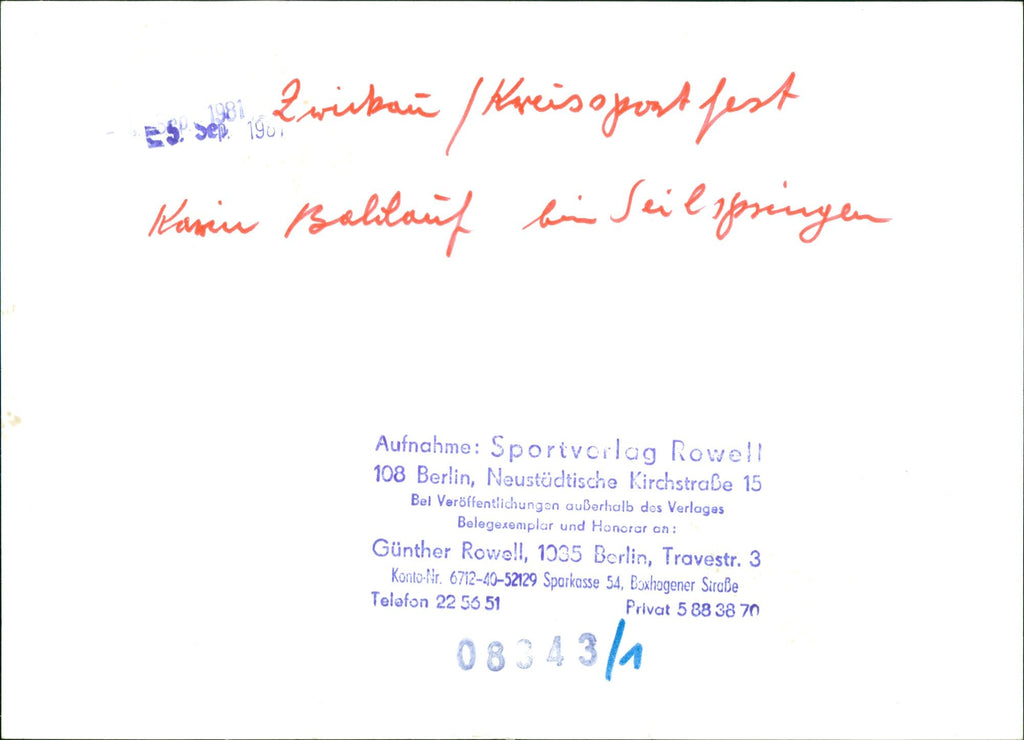 Zwickau / Kreissportfest
Sep. 1981
5. Sep. 1981
Karin Baldauf beim Seilspringen
Aufnahme: Sportverlag Rowell
108 Berlin, Neustädtische Kirchstraße 15
Bei Veröffentlichungen außerhalb des Verlages
Belegexemplar und Honorar an:
Günther Rowell, 1035 Berlin, Travestr. 3
Konto-Nr. 6712-40-52129 Sparkasse 54, Boxhagener Straße
Telefon 22 56 51 Privat 5 88 38 70
08343/1